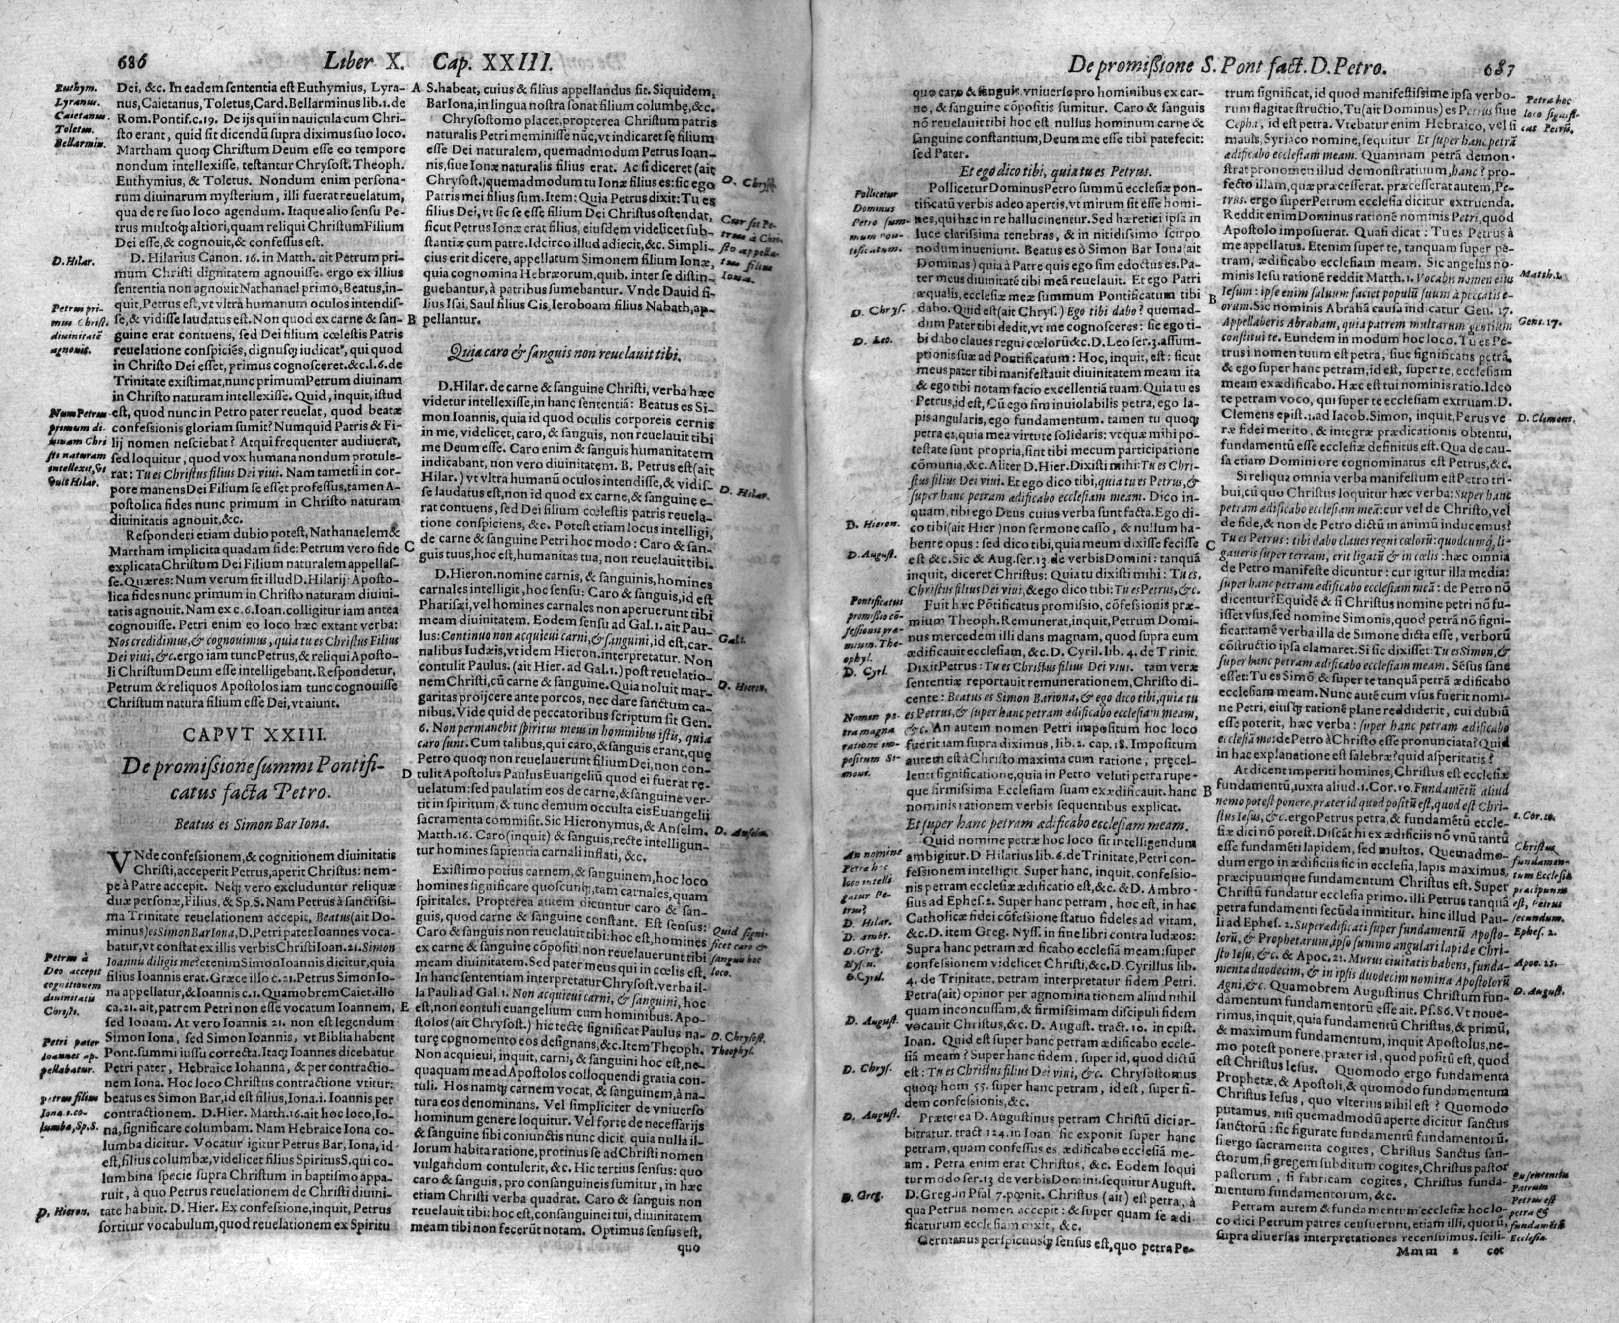 686
Liber X. Cap. XXIII.
Euthym.
Lyranus.
Caietanus.
Toletus.
Bellarmin.
Dei, &c. In eadem sententia est Euthymius, Lyra-
nus, Caietanus, Toletus, Card. Bellarminus lib. 1. de
Rom. Pontif. c. 19. De ijs qui in nauicula cum Chri-
sto erant, quid sit dicendū supra diximus suo loco.
Martham quoq; Christum Deum esse eo tempore
nondum intellexisse, testantur Chrysost. Theoph.
Euthymius, & Toletus. Nondum enim persona-
rum diuinarum mysterium, illi fuerat reuelatum,
qua de re suo loco agendum. Itaque alio sensu Pe-
trus multoq; altiori, quam reliqui Christum Filium
Dei esse, & cognouit, & confessus est.
D. Hilar.
D. Hilarius Canon. 16. in Matth. ait Petrum pri-
mum Christi dignitatem agnouisse. ergo ex illius
sententia non agnouit Nathanael primo, Beatus, in-
quit, Petrus est, vt vltrà humanum oculos intendis-
se, & vidisse laudatus est. Non quod ex carne & san-
guine erat contuens, sed Dei filium cœlestis Patris
reuelatione conspiciēs, dignusq; iudicat', qui quod
in Christo Dei esset, primus cognosceret. &c. l. 6. de
Trinitate existimat, nunc primum Petrum diuinam
in Christo naturam intellexisse. Quid, inquit, istud
est, quod nunc in Petro pater reuelat, quod beatæ
confessionis gloriam sumit? Numquid Patris & Fi-
lij nomen nesciebat? Atqui frequenter audiuerat,
sed loquitur, quod vox humana nondum protule-
rat: Tu es Christus filius Dei viui. Nam tametsi in cor-
pore manens Dei Filium se esset professus, tamen A-
postolica fides nunc primum in Christo naturam
diuinitatis agnouit, &c.
Petrus pri-
mus Christi
diuinitatē
agnouit.
Num Petrus
primum di-
uinam Chri
sti naturam
intellexit, vt
vult Hilar.
Responderi etiam dubio potest, Nathanaelem &
Martham implicita quadam fide: Petrum vero fide
explicata Christum Dei Filium naturalem appellas-
se. Quæres: Num verum sit illud D. Hilarij: Aposto-
lica fides nunc primum in Christo naturam diuini-
tatis agnouit. Nam ex c. 6. Ioan. colligitur iam antea
cognouisse. Petri enim eo loco hæc extant verba:
Nos credidimus, & cognouimus, quia tu es Christus Filius
Dei viui, &c. ergo iam tunc Petrus, & reliqui Aposto-
li Christum Deum esse intelligebant. Respondetur,
Petrum & reliquos Apostolos iam tunc cognouisse
Christum natura filium esse Dei, vt aiunt.
CAPVT XXIII.
De promissione summi Pontifi-
catus facta Petro.
Beatus es Simon Bar Iona.
VNde confessionem, & cognitionem diuinitatis
Christi, acceperit Petrus, aperit Christus: nem-
pe à Patre accepit. Neq; vero excluduntur reliquæ
duæ personæ, Filius, & Sp. S. Nam Petrus à sanctissi-
ma Trinitate reuelationem accepit, Beatus (ait Do-
minus) es Simon Bar Iona, D. Petri pater Ioannes voca-
batur, vt constat ex illis verbis Christi Ioan. 21. Simon
Ioannis diligis me? etenim Simon Ioannis dicitur, quia
filius Ioannis erat. Græce illo c. 21. Petrus Simon Io-
na appellatur, & Ioannis c. 1. Quamobrem Caiet. illo
ca. 21. ait, patrem Petri non esse vocatum Ioannem,
sed Ionam. At vero Ioannis 21. non est legendum
Simon Iona, sed Simon Ioannis, vt Biblia habent
Pont. summi iussu correcta. Itaq; Ioannes dicebatur
Petri pater, Hebraice Iohanna, & per contractio-
nem Iona. Hoc loco Christus contractione vtitur:
beatus es Simon Bar, id est filius, Iona. i. Ioannis per
contractionem. D. Hier. Matth. 16. ait hoc loco, Io-
na, significare columbam. Nam Hebraice Iona co-
lumba dicitur. Vocatur igitur Petrus Bar, Iona, id
est, filius columbæ, videlicet filius Spiritus S. qui co-
lumbina specie supra Christum in baptismo appa-
ruit, à quo Petrus reuelationem de Christi diuini-
tate habuit. D. Hier. Ex confessione, inquit, Petrus
sortitur vocabulum, quod reuelationem ex Spiritu
Petrus à
Deo accepit
cognitionem
diuinitatis
Christi.
Petri pater
Ioannes ap-
pellabatur.
Petrus filius
Iona. i. co-
lumba, Sp. S.
D. Hieron.
A
B
C
D
E
S. habeat, cuius & filius appellandus sit. Siquidem,
Bar Iona, in lingua nostra sonat filium columbę, &c.
Chrysostomo placet, propterea Christum patris
naturalis Petri meminisse nūc, vt indicaret se filium
esse Dei naturalem, quemadmodum Petrus Ioan-
nis, siue Ionæ naturalis filius erat. Ac si diceret (ait
Chrysost.) quemadmodum tu Ionæ filius es: sic ego
Patris mei filius sum. Item: Quia Petrus dixit: Tu es
filius Dei, vt sic se esse filium Dei Christus ostendat,
sicut Petrus Ionæ erat filius, eiusdem videlicet sub-
stantiæ cum patre. Idcirco illud adiecit, &c. Simpli-
cius erit dicere, appellatum Simonem filium Ionæ,
quia cognomina Hebræorum, quib. inter se distin-
guebantur, à patribus sumebantur. Vnde Dauid fi-
lius Isai, Saul filius Cis, Ieroboam filius Nabath, ap-
pellantur.
D. Chrys.
Cur sit Pe-
trus à Chri-
sto appella-
tus filius
Iona.
Quia caro & sanguis non reuelauit tibi.
D. Hilar. de carne & sanguine Christi, verba hæc
videtur intellexisse, in hanc sententiā: Beatus es Si-
mon Ioannis, quia id quod oculis corporeis cernis
in me, videlicet, caro, & sanguis, non reuelauit tibi
me Deum esse. Caro enim & sanguis humanitatem
indicabant, non vero diuinitatem. B. Petrus est (ait
Hilar.) vt vltrà humanū oculos intendisse, & vidis-
se laudatus est, non id quod ex carne, & sanguine e-
rat contuens, sed Dei filium cœlestis patris reuela-
tione conspiciens, &c. Potest etiam locus intelligi,
de carne & sanguine Petri hoc modo: Caro & san-
guis tuus, hoc est, humanitas tua, non reuelauit tibi.
D. Hilar.
D. Hieron. nomine carnis, & sanguinis, homines
carnales intelligit, hoc sensu: Caro & sanguis, id est
Pharisæi, vel homines carnales non aperuerunt tibi
meam diuinitatem. Eodem sensu ad Gal. 1. ait Pau-
lus: Continuo non acquieui carni, & sanguini, id est, car-
nalibus Iudæis, vt idem Hieron. interpretatur. Non
contulit Paulus. (ait Hier. ad Gal. 1.) post reuelatio-
nem Christi, cū carne & sanguine. Quia noluit mar-
garitas proijcere ante porcos, nec dare sanctum ca-
nibus. Vide quid de peccatoribus scriptum sit Gen.
6. Non permanebit spiritus meus in hominibus istis, quia
caro sunt. Cum talibus, qui caro, & sanguis erant, quę
Petro quoq; non reuelauerunt filium Dei, non con-
tulit Apostolus Paulus Euangeliū quod ei fuerat re-
uelatum: sed paulatim eos de carne, & sanguine ver-
tit in spiritum, & tunc demum occulta eis Euangelij
sacramenta commisit. Sic Hieronymus, & Anselm.
Matth. 16. Caro (inquit) & sanguis, recte intelligun-
tur homines sapientia carnali inflati, &c.
Galt.
D. Hieron.
D. Anselm.
Existimo potius carnem, & sanguinem, hoc loco
homines significare quoscunq;, tam carnales, quam
spiritales. Propterea autem dicuntur caro & san-
guis, quod carne & sanguine constant. Est sensus:
Caro & sanguis non reuelauit tibi: hoc est, homines
ex carne & sanguine cōpositi, non reuelauerunt tibi
meam diuinitatem. Sed pater meus qui in cœlis est.
In hanc sententiam interpretatur Chrysost. verba il-
la Pauli ad Gal. 1. Non acquieui carni, & sanguini, hoc
est, non contuli euangelium cum hominibus. Apo-
stolos (ait Chrysost.) hic tecte significat Paulus na-
turę cognomento eos designans, &c. Item Theoph.
Non acquieui, inquit, carni, & sanguini hoc est, ne-
quaquam me ad Apostolos colloquendi gratia con-
tuli. Hos namq; carnem vocat, & sanguinem, à na-
tura eos denominans. Vel simpliciter de vniuerso
hominum genere loquitur. Vel forte de necessarijs
& sanguine sibi coniunctis nunc dicit, quia nulla il-
lorum habita ratione, protinus se ad Christi nomen
vulgandum contulerit, &c. Hic tertius sensus: quo
caro & sanguis, pro consanguineis sumitur, in hæc
etiam Christi verba quadrat. Caro & sanguis non
reuelauit tibi: hoc est, consanguinei tui, diuinitatem
meam tibi non fecerūt notam. Optimus sensus est,
quo
Quid signi-
ficet caro &
sanguis hoc
loco.
D. Chrysost.
Theophyl.
De promissione S. Pont fact. D. Petro.
687
quo caro & sanguis, vniuerso pro hominibus ex car-
ne, & sanguine cōpositis sumitur. Caro & sanguis
nō reuelauit tibi hoc est nullus hominum carne &
sanguine constantium, Deum me esse tibi patefecit:
sed Pater.
Et ego dico tibi, quia tu es Petrus.
Pollicetur Dominus Petro summū ecclesiæ pon-
tificatū verbis adeo apertis, vt mirum sit esse homi-
nes, qui hac in re hallucinentur. Sed hæretici ipsa in
luce clarissima tenebras, & in nitidissimo scirpo
nodum inueniunt. Beatus es ò Simon Bar Iona (ait
Dominus) quia à Patre quis ego sim edoctus es. Pa-
ter meus diuinitatē tibi meā reuelauit. Et ego Patri
æqualis, ecclesiæ meæ summum Pontificatum tibi
dabo. Quid est (ait Chrys.) Ego tibi dabo? quemad-
dum Pater tibi dedit, vt me cognosceres: sic ego ti-
bi dabo claues regni cœlorū &c. D. Leo ser. 3. assum-
ptionis suæ ad Pontificatum: Hoc, inquit, est: sicut
meus pater tibi manifestauit diuinitatem meam. ita
& ego tibi notam facio excellentiā tuam. Quia tu es
Petrus, id est, Cū ego sim inuiolabilis petra, ego la-
pis angularis, ego fundamentum. tamen tu quoq;
petra es, quia mea virtute solidaris: vt quæ mihi po-
testate sunt propria, sint tibi mecum participatione
cōmunia, &c. Aliter D. Hier. Dixisti mihi: Tu es Chri-
stus filius Dei viui. Et ego dico tibi, quia tu es Petrus, &
super hanc petram ædificabo ecclesiam meam. Dico in-
quam, tibi ego Deus cuius verba sunt facta. Ego di-
co tibi (ait Hier) non sermone casso, & nullum ha-
bente opus: sed dico tibi, quia meum dixisse fecisse
est &c. Sic & Aug. ser. 13. de verbis Domini: tanquā
inquit, diceret Christus: Quia tu dixisti mihi: Tu es.
Christus filius Dei viui, & ego dico tibi: Tu es Petrus, &c.
Pollicetur
Dominus
Petro sum-
mum pon-
tificatum.
D. Chrys.
D. Leo.
D. Hieron.
D. August.
Fuit hæc Pōtificatus promissio, cōfessionis præ-
mium Theoph. Remunerat, inquit, Petrum Domi-
nus mercedem illi dans magnam, quod supra eum
ædificauit ecclesiam, &c. D. Cyril. lib. 4. de Trinit.
Dixit Petrus: Tu es Christus filius Dei viui. tam veræ
sententiæ reportauit remunerationem, Christo di-
cente: Beatus es Simon Bariona, & ego dico tibi, quia tu
es Petrus, & super hanc petram ædificabo ecclesiam meam,
&c. An autem nomen Petri impositum hoc loco
fuerit iam supra diximus, lib. 2. cap. 18. Impositum
autem est à Christo maxima cum ratione, pręcel-
lenti significatione, quia in Petro veluti petra rupe-
que firmissima Ecclesiam suam exædificauit. hanc
nominis rationem verbis sequentibus explicat.
Et super hanc petram ædificabo ecclesiam meam.
Pontificatus
promissio cō-
fessionis præ-
mium. The-
ophyl.
D. Cyrl.
Nomen pe-
tra magna
ratione im-
positum Si-
moni.
Quid nomine petræ hoc loco sit intelligendum
ambigitur. D Hilarius lib. 6. de Trinitate, Petri con-
fessionem intelligit. Super hanc, inquit, confessio-
nis petram ecclesiæ ædificatio est, &c. & D. Ambro-
sius ad Ephes. 2. Super hanc petram, hoc est, in hac
Catholicæ fidei cōfessione statuo fideles ad vitam,
&c. D. item Greg. Nyss. in fine libri contra Iudæos:
Supra hanc petram æd ficabo ecclesiam meam; super
confessionem videlicet Christi, &c. D. Cyrillus lib.
4. de Trinitate, petram interpretatur fidem Petri.
Petra (ait) opinor per agnominationem aliud nihil
quam inconcussam, & firmissimam discipuli fidem
vocauit Christus, &c. D. August. tract. 10. in epist.
Ioan. Quid est super hanc petram ædificabo eccle-
siā meam? Super hanc fidem, super id, quod dictū
est: Tu es Christus filius Dei viui, &c. Chrysostomus
quoq; hom 55. super hanc petram, id est, super fi-
dem confessionis, &c.
An nomine
Petra hoc
loco intelli
gatur Pe-
trus?
D. Hilar.
D. Ambr.
D. Greg.
Nyss.
D. Cyril.
D. August.
D. Chrys.
D. August.
Præterea D. Augustinus petram Christū dici ar-
bitratur. tract 124. in Ioan sic exponit super hanc
petram, quam confessus es, ædificabo ecclesiā me-
am. Petra enim erat Christus, &c. Eodem loqui
tur modo ser. 13 de verbis Domini. sequitur August.
D. Greg. in Psal 7. pœnit. Christus (ait) est petra, à
qua Petrus nomen accepit: & super quam se ædi-
ficaturum ecclesiam dixit, &c.
Germanus perspicuusq; sensus est, quo petra Pe-
D. Greg.
B
C
B
trum significat, id quod manifestissime ipsa verbo-
rum flagitat structio. Tu (ait Dominus) es Petrus siue
Cepha, id est petra. Vtebatur enim Hebraico, vel si
mauis, Syriaco nomine, sequitur Et super hanc petrā
ædificabo ecclesiam meam. Quamnam petrā demon-
strat pronomen illud demonstratiuum, hanc? pro-
fecto illam, quæ præcesserat. præcesserat autem, Pe-
trus. ergo super Petrum ecclesia dicitur extruenda.
Reddit enim Dominus rationē nominis Petri, quod
Apostolo imposuerat. Quasi dicat: Tu es Petrus à
me appellatus. Etenim super te, tanquam super pe-
tram, ædificabo ecclesiam meam. Sic angelus no-
minis Iesu rationē reddit Matth. 1. Vocabis nomen eius
Iesum: ipse enim saluum faciet populū suum à peccatis e-
orum. Sic nominis Abrahā causa indicatur Gen. 17.
Appellaberis Abraham, quia patrem multarum gentium
constitui te. Eundem in modum hoc loco. Tu es Pe-
trus: nomen tuum est petra, siue significans petrā,
& ego super hanc petram, id est, super te, ecclesiam
meam exædificabo. Hæc est tui nominis ratio. Ideo
te petram voco, qui super te ecclesiam extruam. D.
Clemens epist. 1. ad Iacob. Simon, inquit, Petrus ve
ræ fidei merito, & integræ prædicationis obtentu,
fundamentū esse ecclesiæ definitus est. Qua de cau-
sa etiam Domini ore cognominatus est Petrus, &c.
Petra hoc
loco signifi-
cat Petrū.
Matth. 1.
Gen. 17.
D. Clemens.
Si reliqua omnia verba manifestum est Petro tri-
bui, cū quo Christus loquitur hæc verba: Super hanc
petram ædificabo ecclesiam meā: cur vel de Christo, vel
de fide, & non de Petro dictū in animū inducemus?
Tu es Petrus: tibi dabo claues regni cœlorū: quodcumq; li-
gaueris super terram, erit ligatū & in cœlis: hæc omnia
de Petro manifeste dicuntur: cur igitur illa media:
super hanc petram ædificabo ecclesiam meā: de Petro nō
dicentur? Equidē & si Christus nomine petri nō fu-
isset vsus, sed nomine Simonis, quod petrā nō signi-
ficat: tamē verba illa de Simone dicta esse, verborū
cōstructio ipsa clamaret. Si sic dixisset: Tu es Simon, &
super hanc petram ædificabo ecclesiam meam. Sēsus sane
esset: Tu es Simō & super te tanquā petrā ædificabo
ecclesiam meam. Nunc autē cum vsus fuerit nomi-
ne Petri, eiusq; rationē plane reddiderit, cui dubiū
esse poterit, hæc verba: super hanc petram ædificabo
ecclesiā meā: de Petro à Christo esse pronunciata? Quid
in hac explanatione est salebræ? quid asperitatis?
At dicent imperiti homines, Christus est ecclesiæ
fundamentū, iuxta aliud. 1. Cor. 10. Fundamētū aliud
nemo potest ponere, præter id quod positū est, quod est Chri-
stus Iesus, &c. ergo Petrus petra, & fundamētū eccle-
siæ dici nō potest. Discāt hi ex ædificiis nō vnū tantū
esse fundamēti lapidem, sed multos. Quemadmo-
dum ergo in ædificiis sic in ecclesia, lapis maximus,
præcipuumque fundamentum Christus est. Super
Christū fundatur ecclesia primo. illi Petrus tanquā
petra fundamenti secūda innititur. hinc illud Pau-
li ad Ephes. 2. Superædificati super fundamentū Aposto-
lorū, & Prophetarum, ipso summo angulari lapide Chri-
sto Iesu, &c. & Apoc. 21. Murus ciuitatis habens, funda-
menta duodecim, & in ipsis duodecim nomina Apostolorū
Agni, &c. Quamobrem Augustinus Christum fun-
damentum fundamentorū esse ait. Ps. 86. Vt noue-
rimus, inquit, quia fundamentū Christus, & primū,
& maximum fundamentum, inquit Apostolus, ne-
mo potest ponere, præter id, quod positū est, quod
est Christus Iesus. Quomodo ergo fundamenta
Prophetæ, & Apostoli, & quomodo fundamentum
Christus Iesus, quo vlterius nihil est? Quomodo
putamus, nisi quemadmodū aperte dicitur sanctus
sanctorū: sic figurate fundamentū fundamentorū.
si ergo sacramenta cogites, Christus Sanctus san-
ctorum, si gregem subditum cogites, Christus pastor
pastorum, si fabricam cogites, Christus funda-
mentum fundamentorum, &c.
1. Cor. 10.
Christus
fundamen-
tum Ecclesiæ
præcipuum
est, Petrus
secundum.
Ephes. 2.
Apoc. 21.
D. August.
Petram autem & fundamentum ecclesiæ hoc lo-
co dici Petrum patres censuerunt, etiam illi, quorū,
supra diuersas interpretationes recensuimus. scili-
Mmm 2
cet
Patrum
Petrus est
petra &
fundamētū
Ecclesiæ